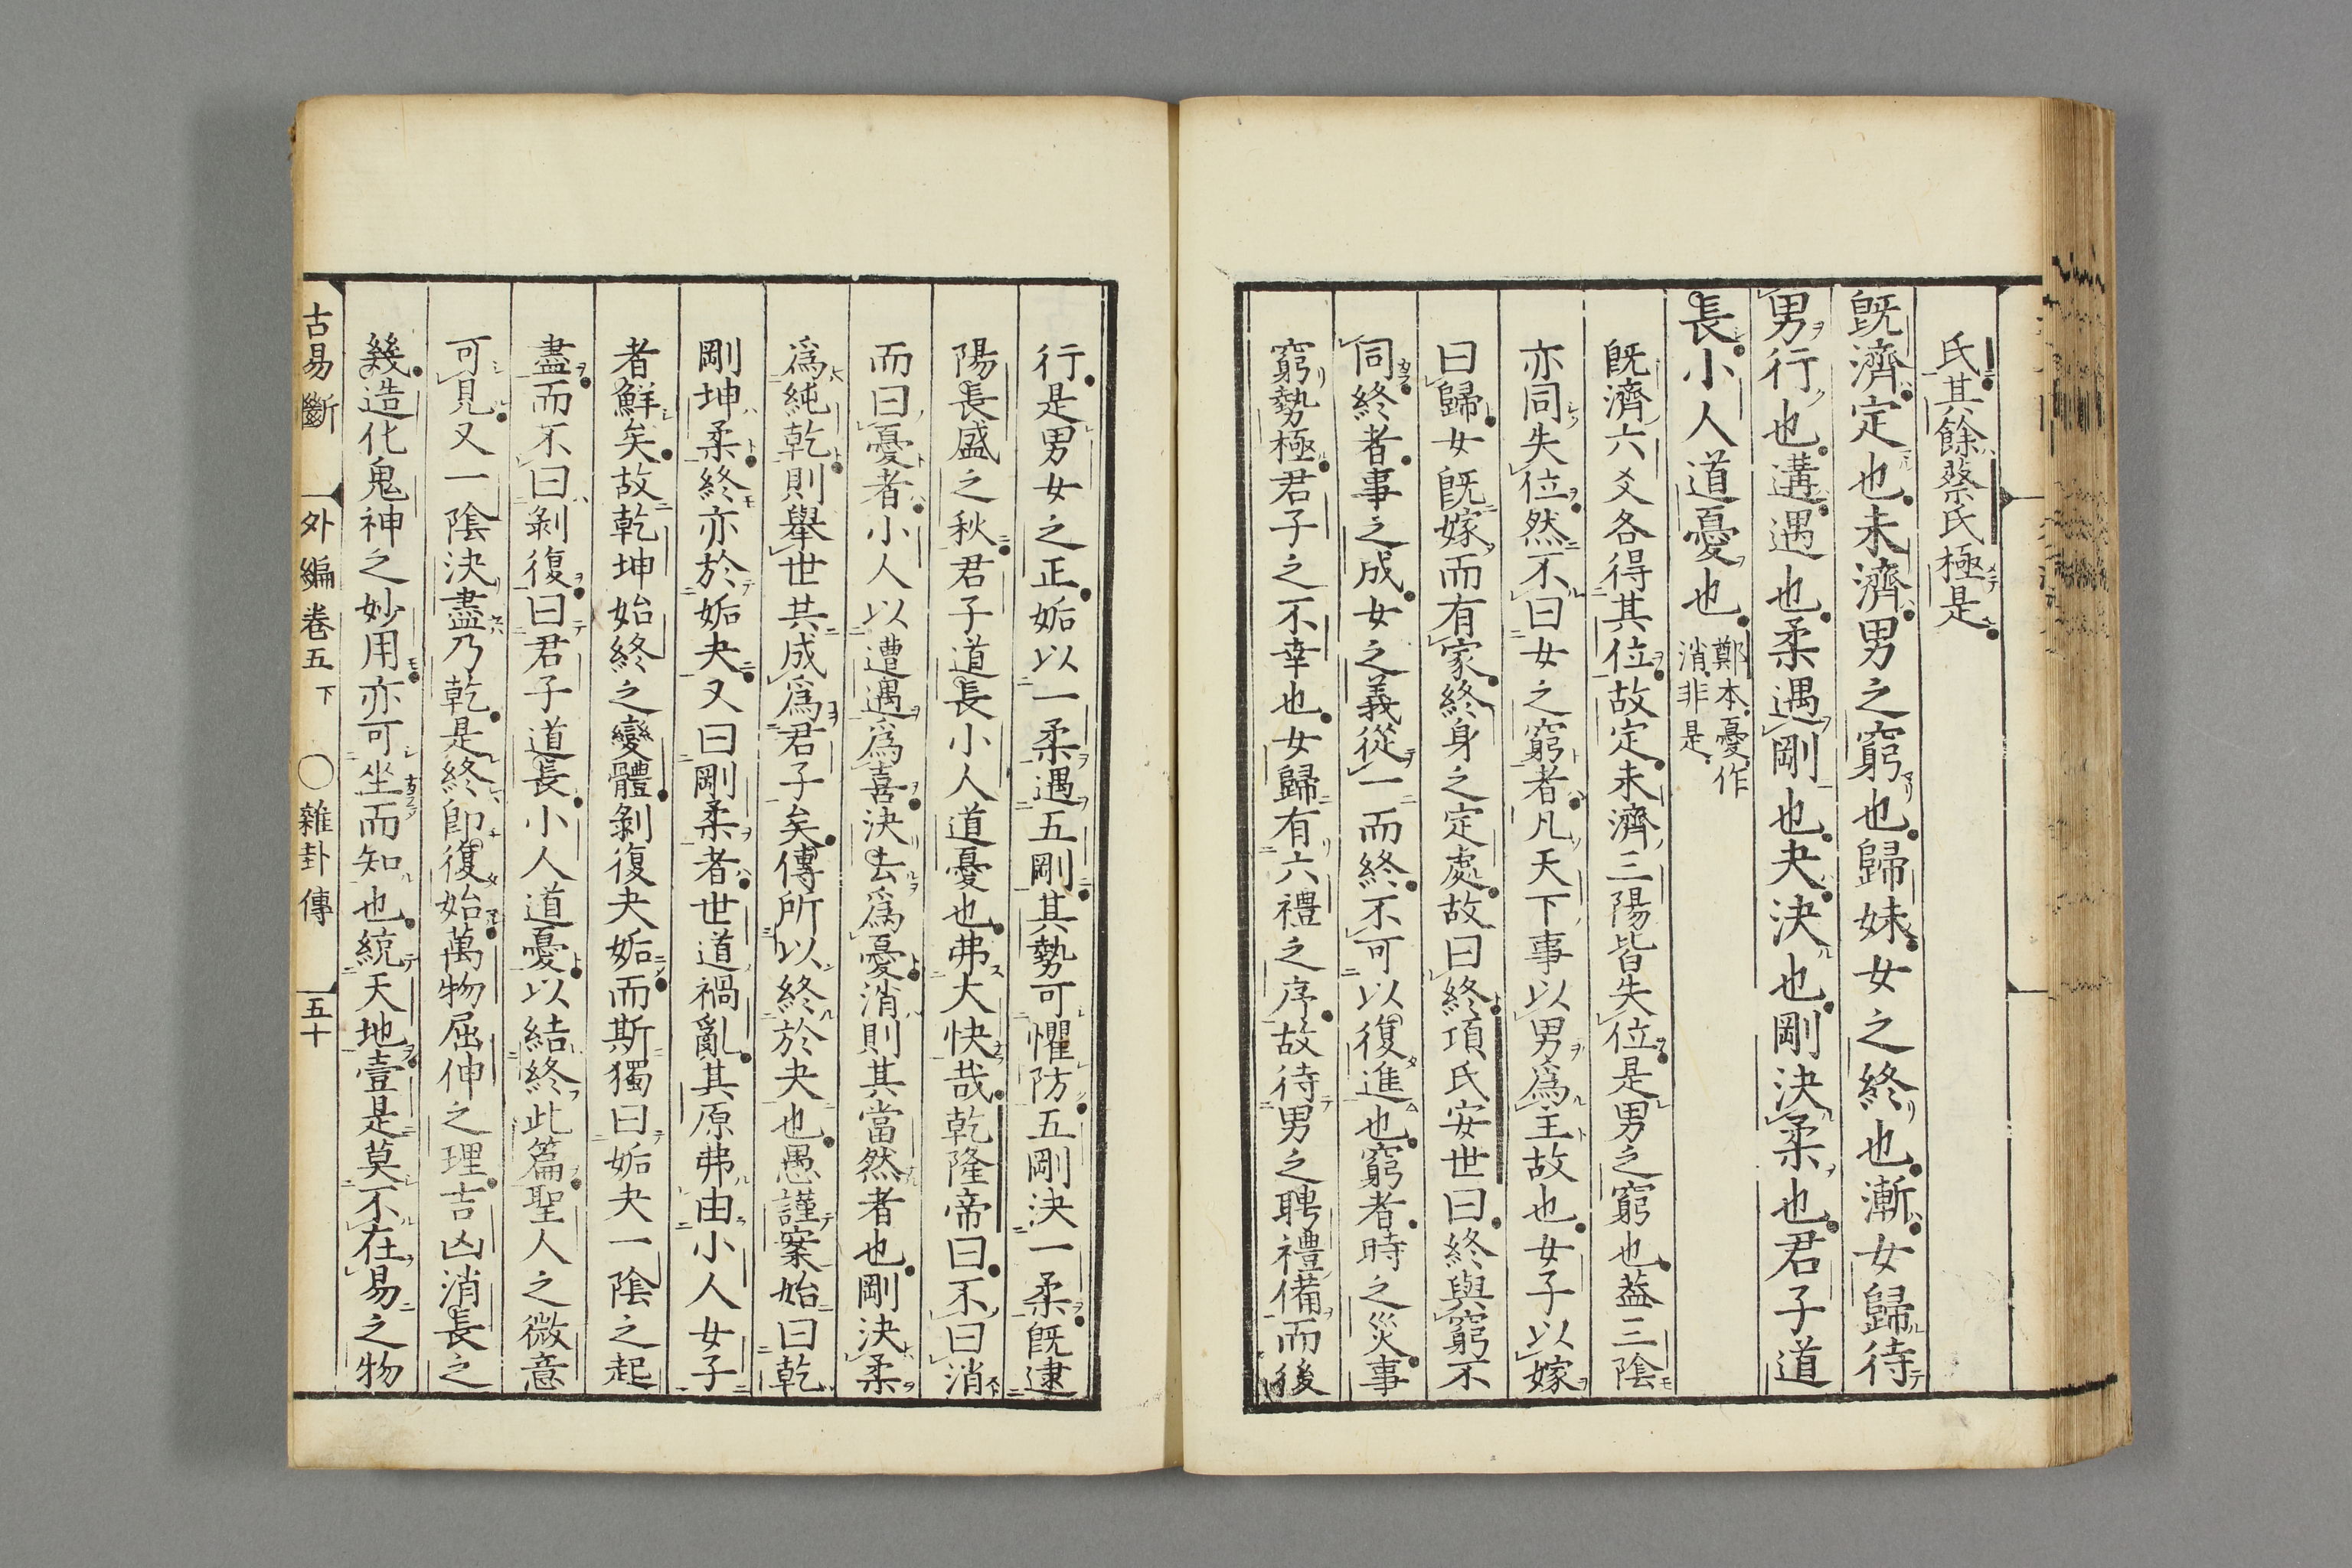 氏其餘蔡氏極是
既濟定也未濟男之窮也歸妹女之終也漸女歸待
男行也遘遇也柔遇剛也夬決也剛決柔也君子道
長小人道憂也鄭本憂作消非是
既濟六爻各得其位故定未濟三陽皆失位是男之窮也蓋三陰
亦同失位然不曰女之窮者凡天下事以男爲主故也女子以嫁
曰歸女既嫁而有家終身之定處故曰終項氏安世曰終與窮不
同終者事之成女之義從一而終不可以復進也窮者時之災事
窮勢極君子之不幸也女歸有六禮之序故待男之聘禮備而後
行是男女之正姤以一柔遇五剛其勢可懼防五剛決一柔既逮
陽長盛之秋君子道長小人道憂也弗大快哉乾隆帝曰不曰消
而曰憂者小人以遭遇爲喜決去爲憂消則其當然者也剛決柔
爲純乾則舉世共成爲君子矣傳所以終於夬也愚謹案始曰乾
剛坤柔終亦於姤夬又曰剛柔者世道禍亂其原弗由小人女子
者鮮矣故乾坤始終之變體剝復夬姤而斯獨曰姤夬一陰之起
盡而不曰剝復曰君子道長小人道憂以結終此篇聖人之微意
可見又一陰決盡乃乾是終即復始萬物屈伸之理吉凶消長之
幾造化鬼神之妙用亦可坐而知也統天地壹是莫不在易之物
古易斷　外編卷五下　〇雜卦傳　五十